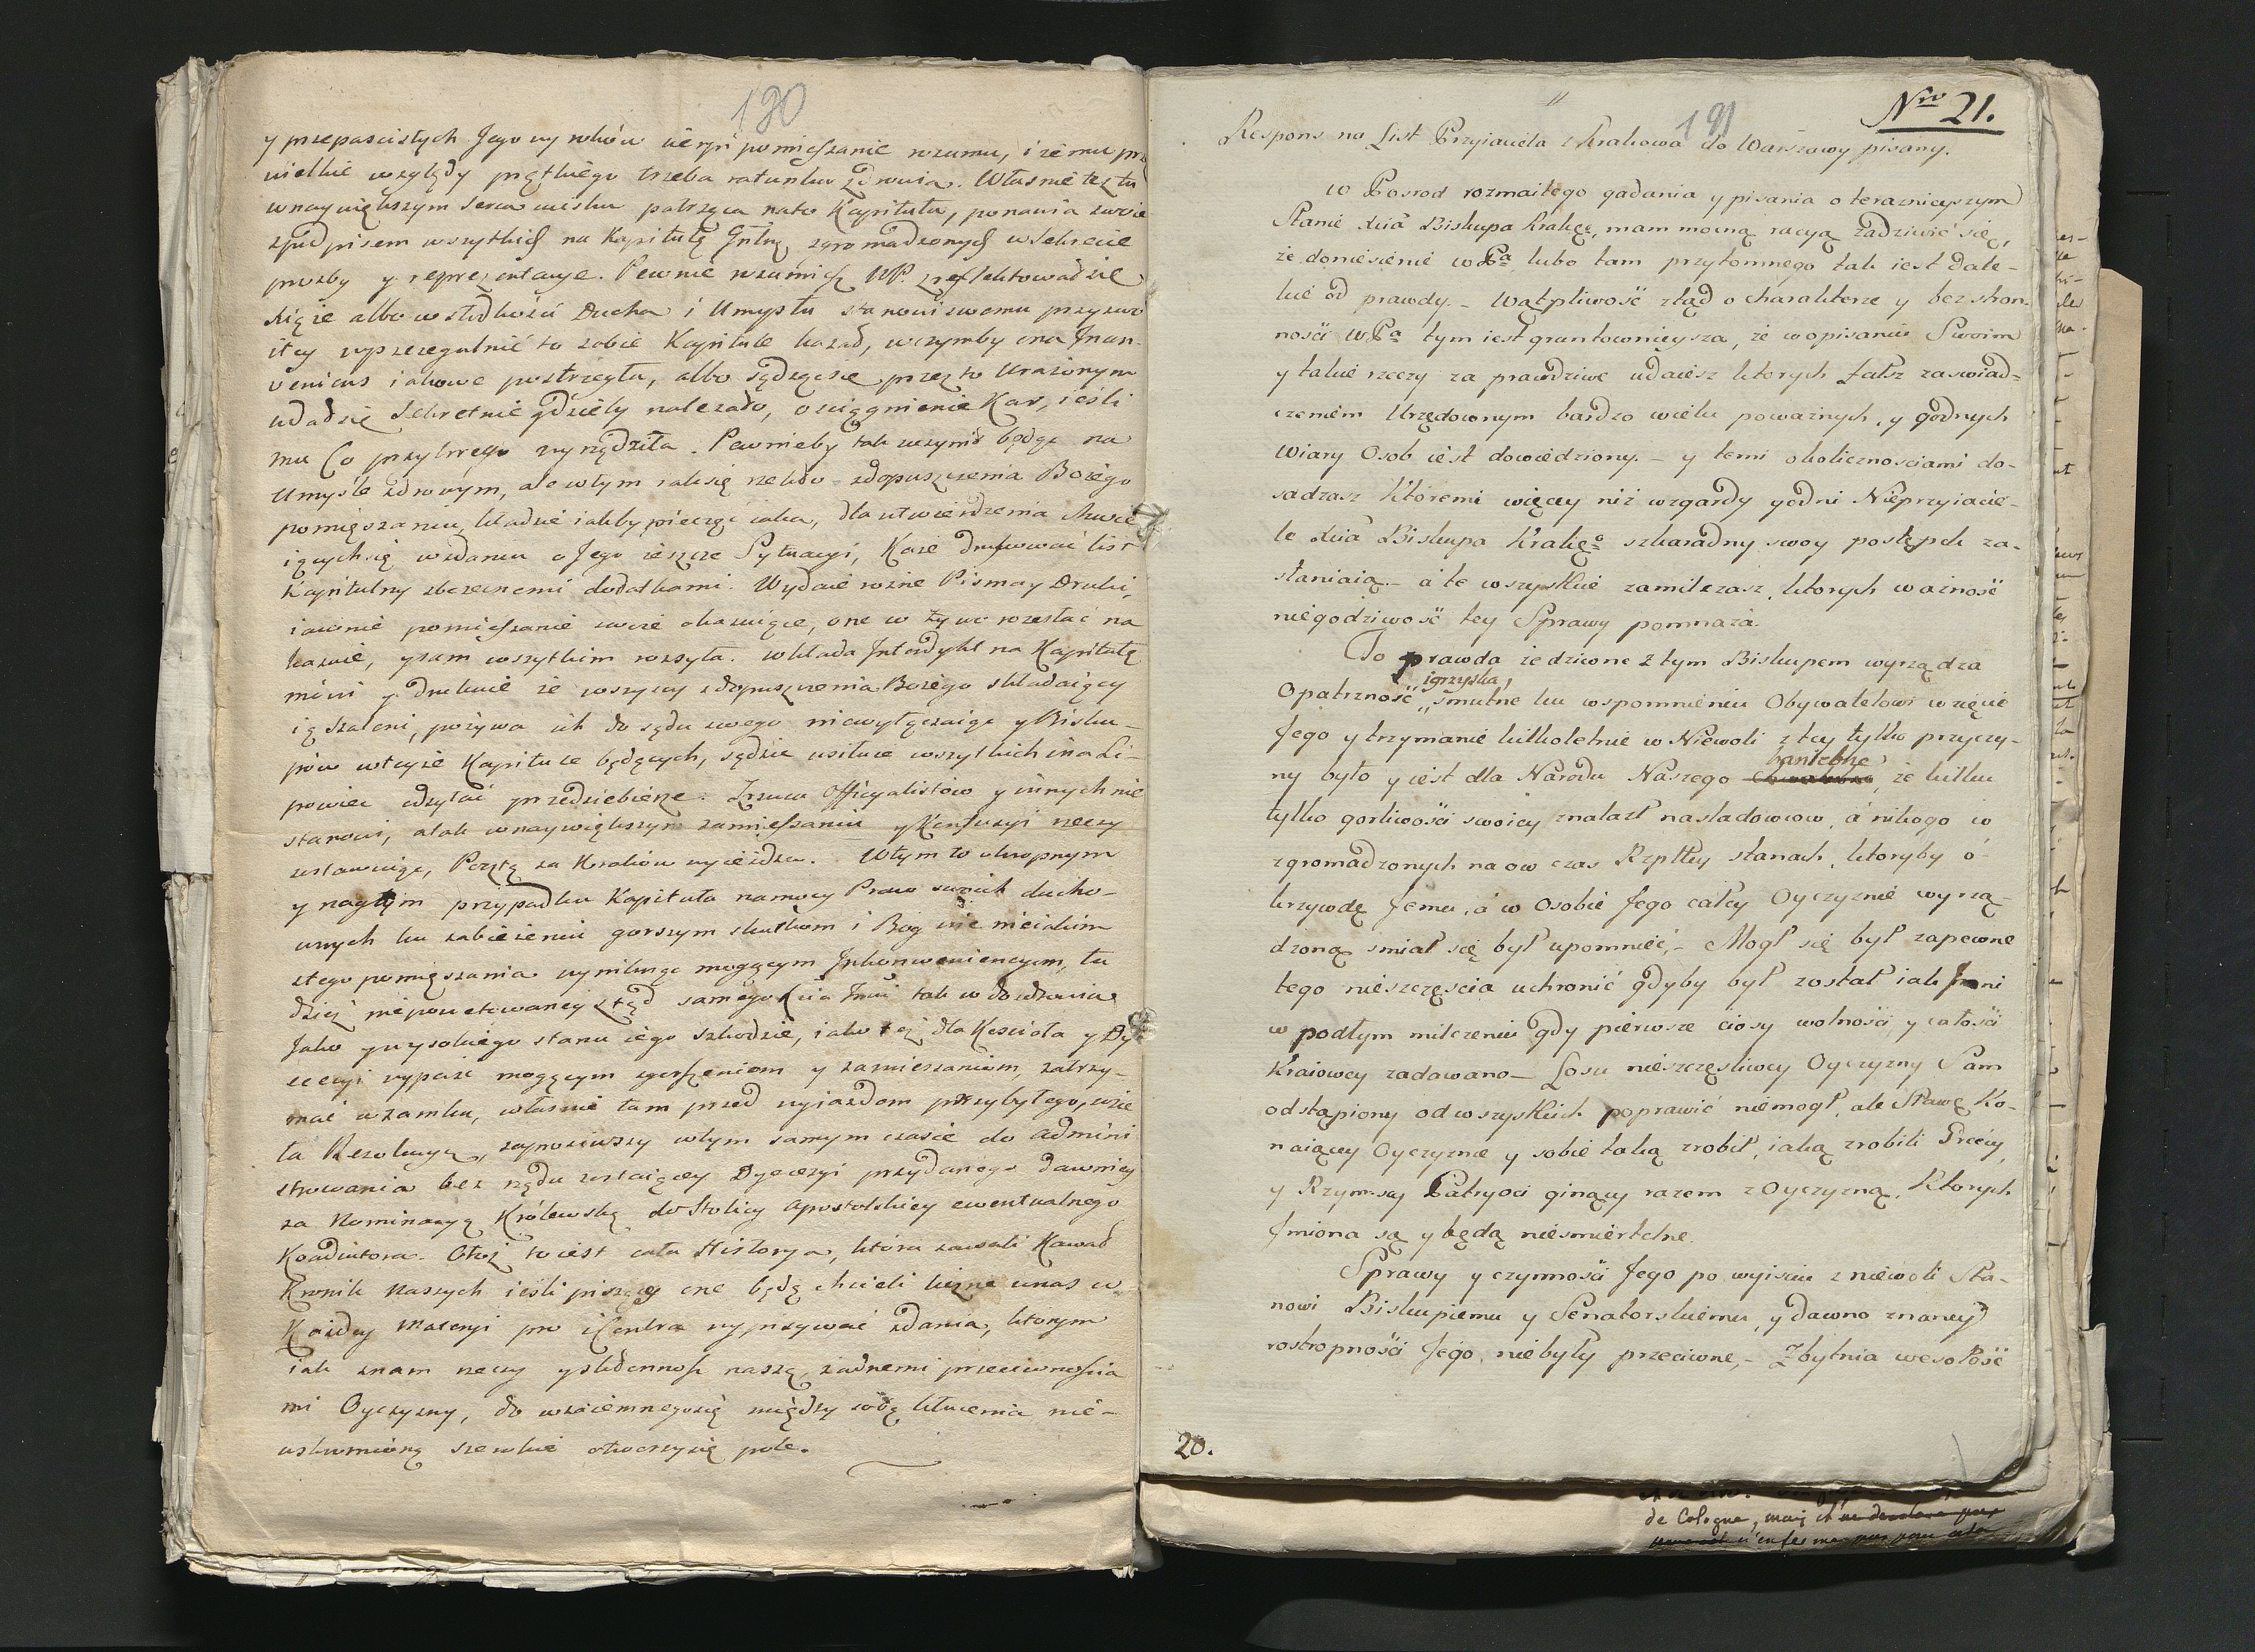 190
y przepascistych Jego wyrokow cierpi pomieszanie rozumu, i ze mu prz
wielkie względy prętkiego trzeba ratunku zdrowia. Własnie też tu
w naywiększym serca ucisku patrząca na to Kapituła, ponawia swoie
z podpisem wszytkich na Kapitułę Gnlną zgromadzonych w Sekrecie
prozby y reprezentacye. Pewnie rozumiesz WP. zreflektował sie
Xiąże albo w słodkości Ducha i Umysłu stanowi swemu przyzwo
itey wyszczegulnić to sobie Kapitule kazał, w czymby ona Jncon-
veniens iakowe postrzegła, albo sądząc sie przez to Urażonym
udał się Sekretnie gdzieby nalezało, o sciągnienie Kar, ieśli
mu Co przykrego wyrządziła. Pewnieby tak uczynił będąc na
Umyśle zdrowym, ale w tym iak się rzekło z dopuszczenia Bożego
pomięszaniu, kładzie iakby pieczęć iaka, dla utwierdzenia
iących się w zdaniu o Jego ieszcze Sytuacyi, Każe drukować list
Kapitulny z bezecnemi dodatkami. Wydaie rożne Pisma y Druki,
iawnie pomieszanie swoie okazuiące, one w tyluc rozesłać na
każuie, y sam wszytkim rozsyła. wkłada Jnterdykt na Kapitułę
mówi y drukuie że wszyscy z dopuszczenia Bożego składaiący
ią szaleni, pożywa ich do sądu swego niewyłączaiąc y Bisku-
pów w teyże Kapitule będących, sądzić usiłuie wszytkich i na Li-
powiec odsyłać przedsiębierze. Zrzuca Officyalistów y innych nie
stanowi, a tak w naywiększym zamieszaniu y Konfuzyi rzeczy
zostawuiąc, Pocztą za Krakow wyieżdza. W tym to okropnym
y nagłym przypadku Kapituła na mocy Praw swoich ducho-
wnych ku zabieżeniu gorszym skutkom i Bog wie nieiakim
z tego pomięszania wyniknąć mogącym Jnkonweniencyom, tu
dzież niepowetowaney ztąd samego Xcia Jmci tak w do zdrowia
Jako y wysokiego stanu iego szkodzie, iako też dla Kościoła y Dy
ecezyi wypaść mogącym zgorszeniom y zamieszaniom, zatrzy-
mać w zamku, własnie tam przed wyiazdom przybyłego, wzię
ła Rezolucyą, zaprosiwszy w tym samym czasie do Admini
strowania bez rządu zostaiącey Dyecezyi przydanego dawniey
za Nominacyą Królewską do Stolicy Apostolskiey ewentualnego
Koadiutora. Otoż to iest cała History a, która zawali Kawał
Kronik Naszych ieśli piszący one będą chcieli liczne u nas w
Każdey Materyi pro i Contra wypisywać zdania, ktorym
iak znam rzeczy y skłonnosc naszą, żadnemi przeciwnoscia
mi Oyczyzny, do wzaiemnego się między sobą kłucenia nie-
uskromioną szerokie otworzy się pole.
191
Nro 21.
Respons na List Przyiaciela z Krakowa do Warszawy pisany.
W Posrod rozmaitego gadania y pisania o teraznieyszym
Stanie Xcia Biskupa Krakgo, mam mocną racyą zadziwić się,
że doniesienie WPa lubo tam przytomnego tak iest dale-
kie od prawdy. - Wątpliwość ztąd o charakterze y bezstron-
ności WPa tym iest gruntownieysza, że w opisaniu Swoim
y takie rzeczy za prawdziwe udaiesz ktorych Fałsz zaswiad=
czeniem Urzędownym bardzo wielu poważnych, y godnych
Wiary Osob iest dowiedziony. - y temi okolicznosciami do-
sadzasz któremi więcey niż wzgardy godni Nieprzyiacie-
le Xcia Biskupa Krakgo szkaradny swoy postępek za-
słaniaią. - a te wszystkie zamilczasz, ktorych ważność
niegodziwość tey Sprawy pomnaża.
To prawda że dziwne z tym Biskupem wyrządza
Opatrzność igrzyska, smutne ku wspomnieniu Obywatelowi wzięcie
Jego y trzymanie kilkoletnie w Niewoli z tey tylko przyczy-
ny było y iest dla Narodu Naszego haniebne, że kilku
tylko gorliwości swoiey znalazł nasladowcow, á nikogo w
zgromadzonych na ow czas Rzpltey stanach, ktoryby ó
krzywdę Jemu, á w Osobie Jego całey Oyczyznie wyrzą-
dzoną smiał się był upomnieć, - Mogł się był zapewne
tego nieszczęscia uchronić gdyby był został iak Jnni
w podłym milczeniu gdy pierwsze ciosy wolności y całości
Kraiowey zadawano - Losu nieszczęsliwey Oyczyzny Sam
odstąpiony od wszystkich poprawić niemogł, ale Sławę Ko-
naiącey Oyczyznie y sobie taką zrobił, iaką zrobili Grecy,
y Rzymscy Patryoci ginący razem z Oyczyzną, Ktorych
Jmiona są y będą niesmiertelne.
Sprawy y czynności Jego po wyisciu z niewoli Sta-
nowi Biskupiemu y Senatorskiemu, y dawno znaney
rostropności Jego, niebyły przeciwne, - Zbytnia wesołość
20.
de Cologne, mais